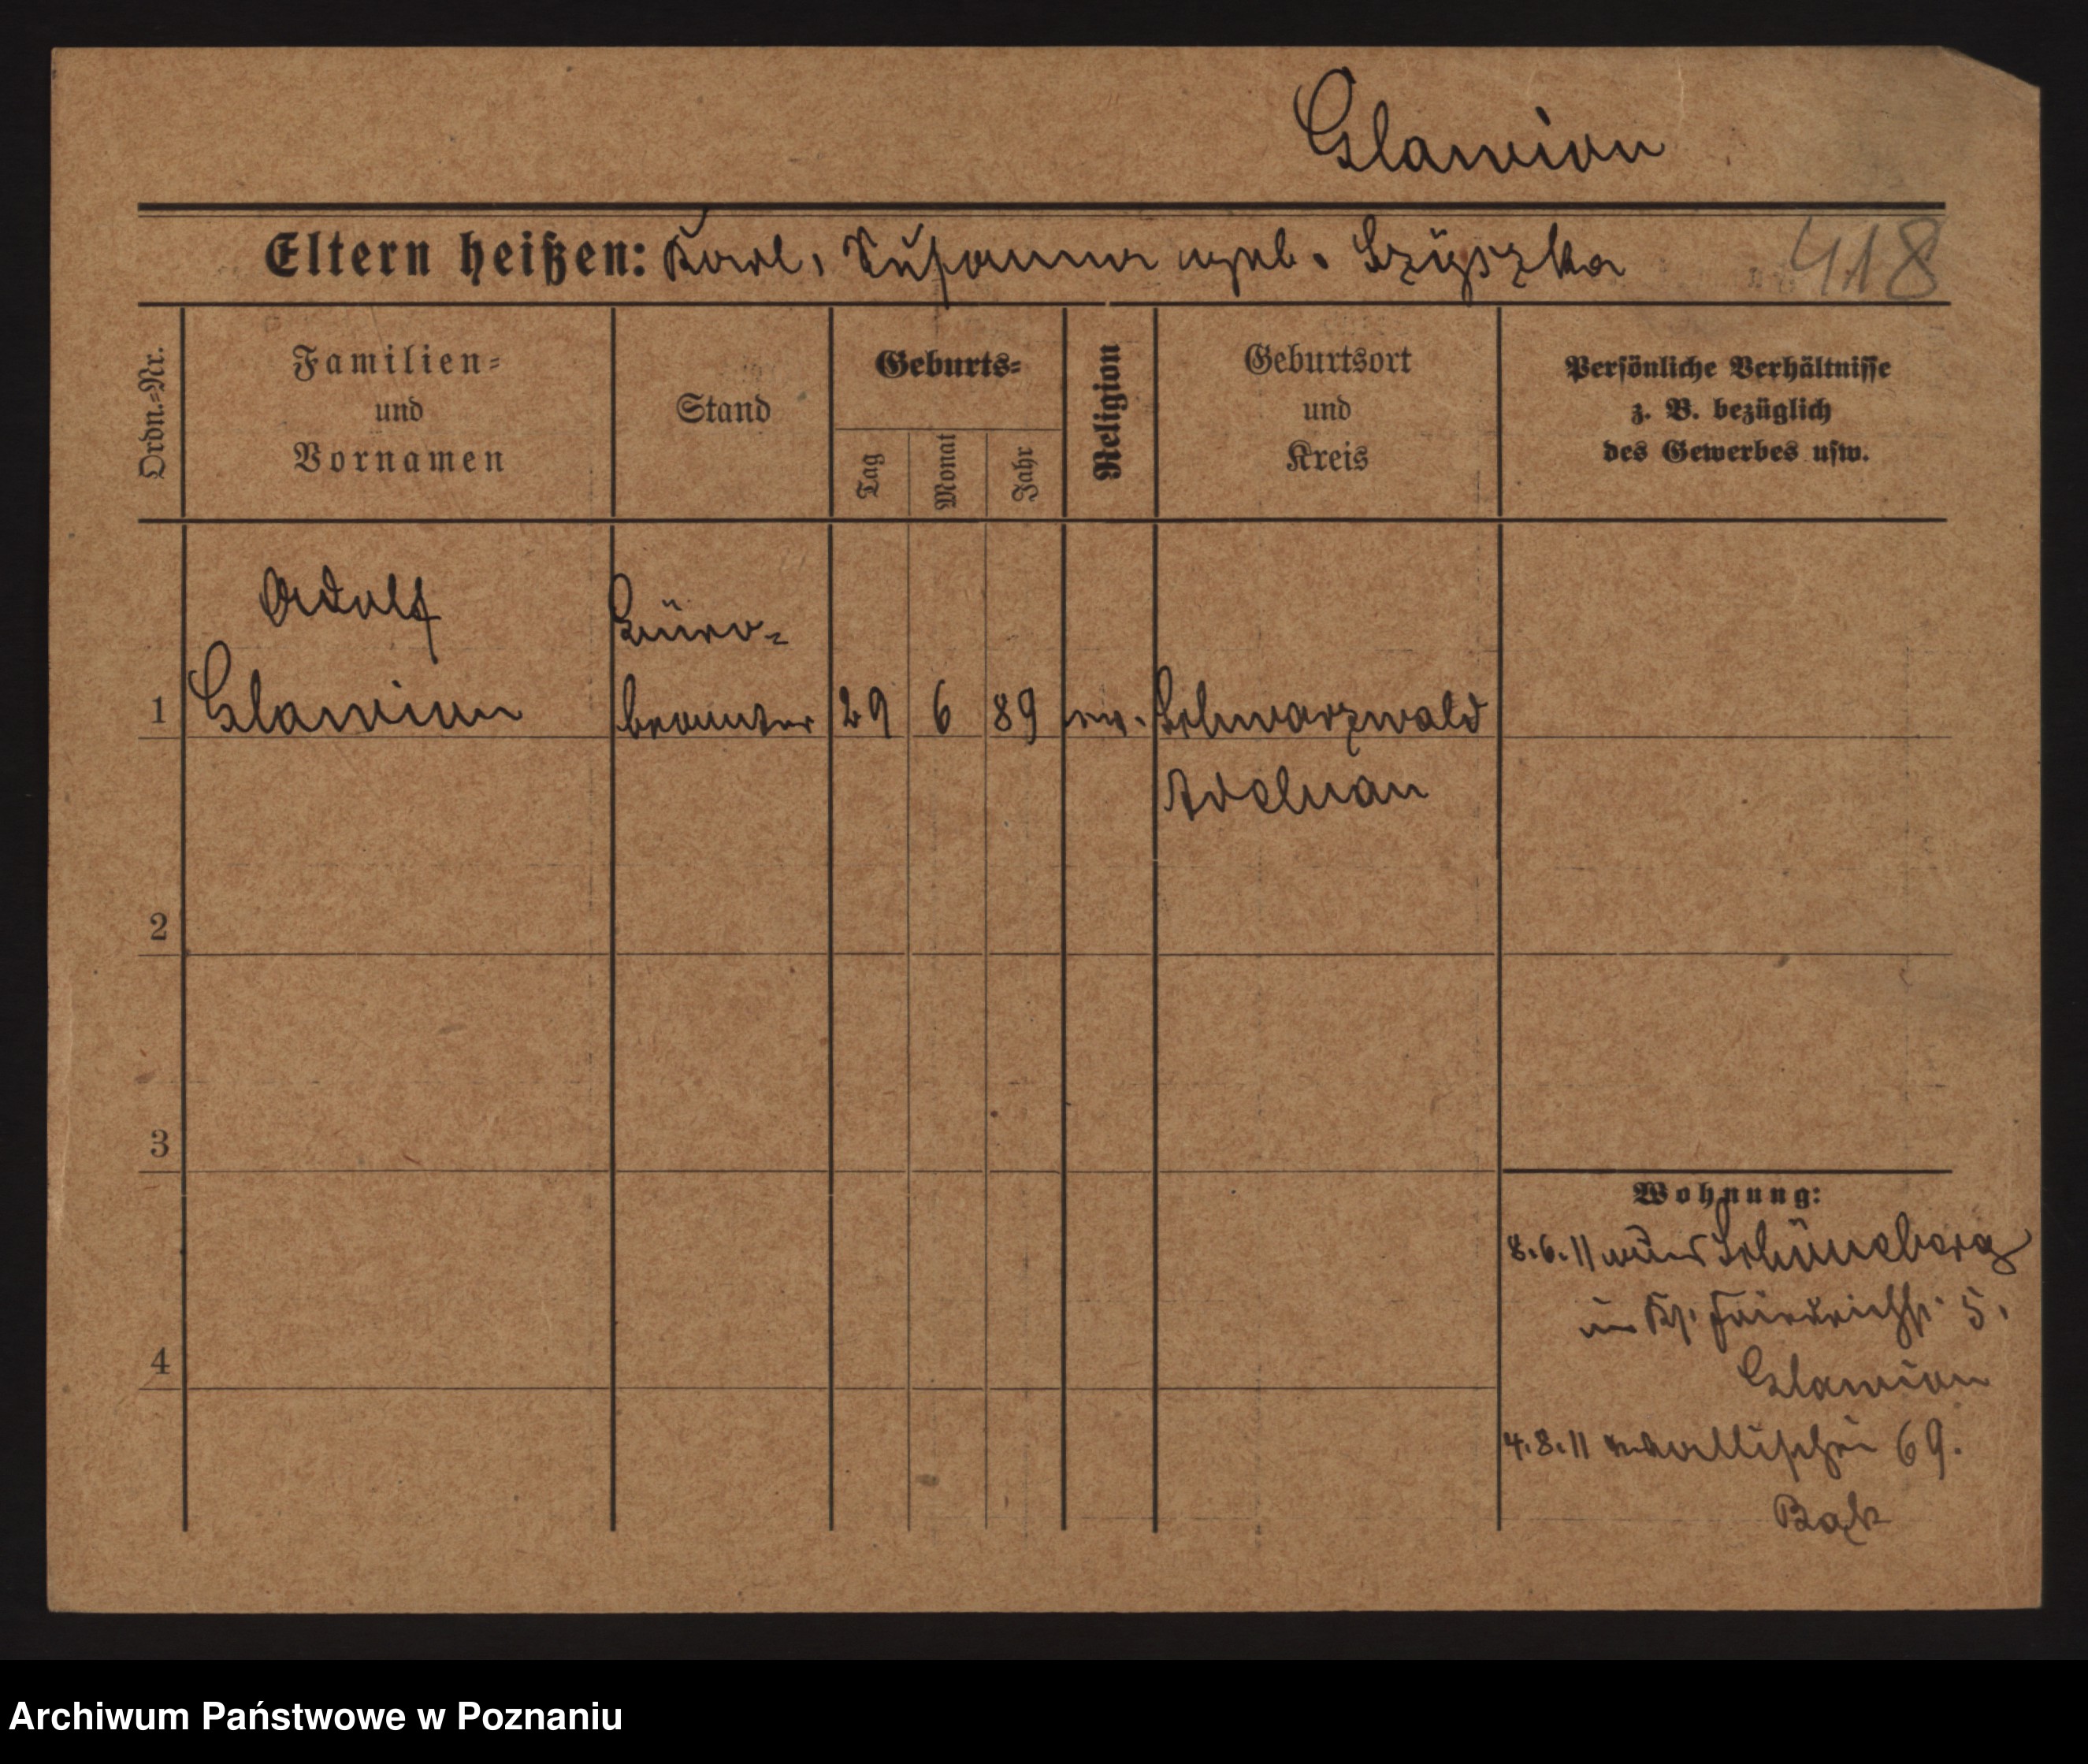 Glawion
Eltern heißen: Karl, Susanna geb. Szyszka 418
Ordn.-Nr.
Familien-
und
Vornamen
Stand
Geburts-
Tag
Monat
Jahr
Religion
Geburtsort
und
Kreis
Persönliche Verhältnisse
z. B. bezüglich
des Gewerbes usw.
Adolf
Büro-
1 Glawion beamter 29 6 89 ev. Schwarzwald
Adelnau
2
3
4
Wohnung:
8.6.11 Schöneberg
Friedrichstr. 5.
Glawion
4.8.11 Wallischei 69.
Bąk
Archiwum Państwowe w Poznaniu